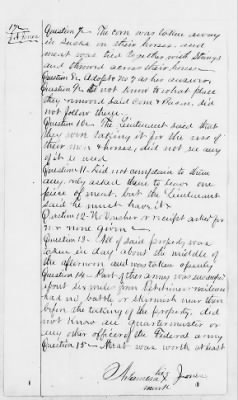 Question 7- The corn was taken away
in sacks on their horses. and
meat was tied together with strings
and thrown across their horses
Question 8- Adopts No 7 as his answer,
Question 9- did not know to what place
they removed said corn & Bacon. did
not follow them.
Question 10- The Lieutenant said that
they were taking it for the use of
their men & horses, did not see any
of it used
Question 11- Did not complain to them
any, only asked them to leave one
piece of meat, but the Lieutenant
said he must have it.
Question 12- No voucher or receipt asked for
or none given
Question 13- All of said property was
taken in day about the middle of
the afternoon and was taken openly
Question 14- Part of the army was
about six miles from Petitioner's
had no battle or skirmish near them
before the taking of the property, did
not know any quartermaster or
any other officers of the Federal army
Question 15- Meat was worth at least
his
X Jones
mark